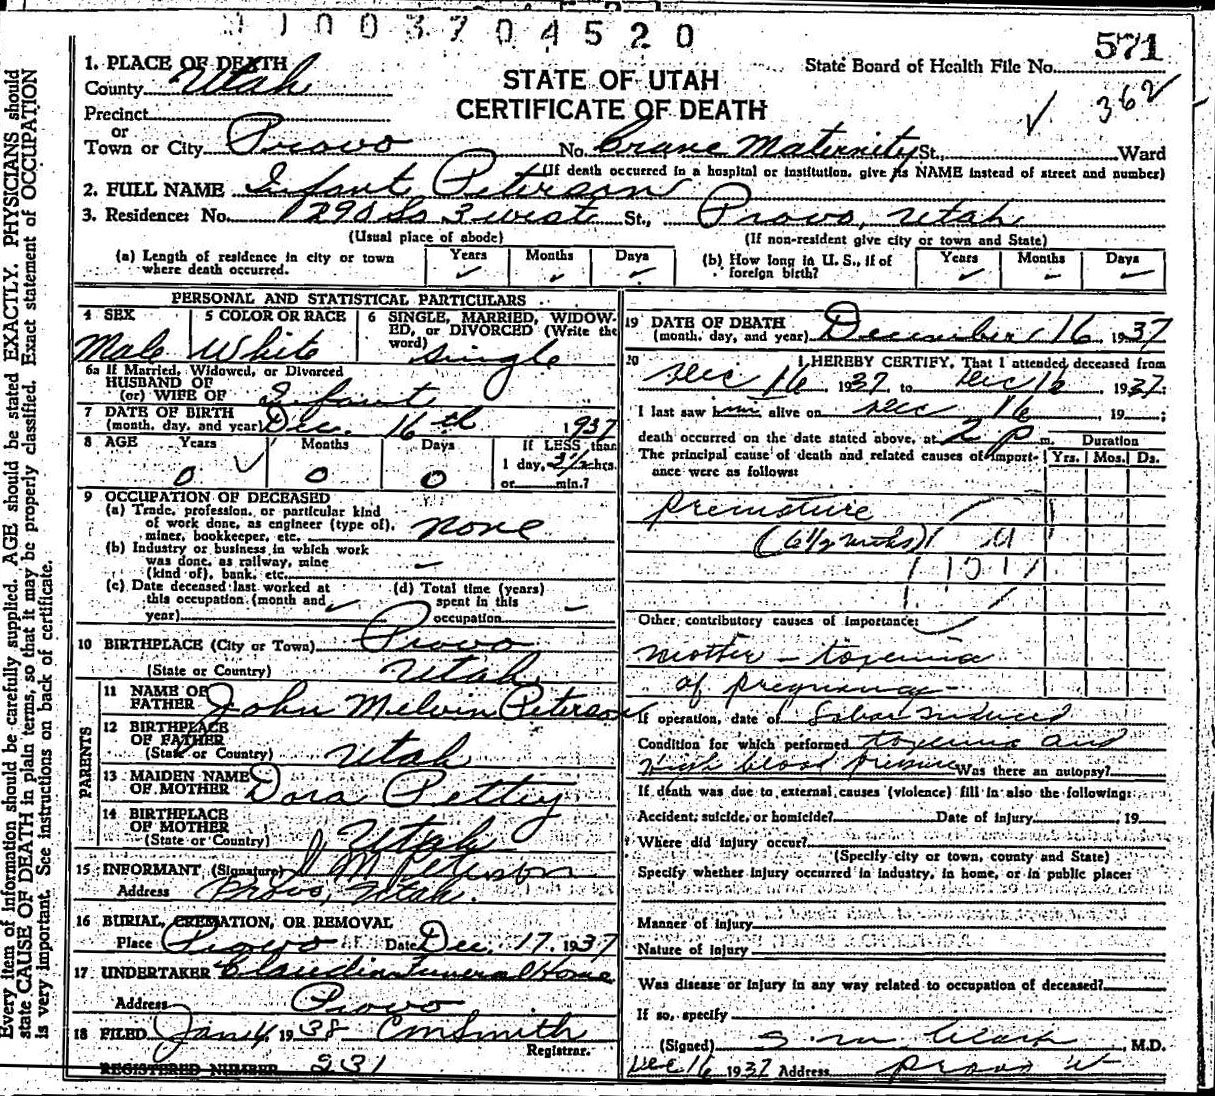 1003704520
571
State Board of Health File No.
362
STATE OF UTAH
CERTIFICATE OF DEATH
1. PLACE OF DEATH
County Utah
Precinct
or
Town or City Provo No. Crane Maternity St., Ward
(If death occurred in a hospital or institution, give its NAME instead of street and number)
2. FULL NAME Infant Peterson
3. Residence: No. 1290 So 3 west St., Provo, Utah
(Usual place of abode) (If non-resident give city or town and State)
(a) Length of residence in city or town where death occurred. Years Months Days
(b) How long in U. S., if of foreign birth? Years Months Days
PERSONAL AND STATISTICAL PARTICULARS
4 SEX Male
5 COLOR OR RACE White
6 SINGLE, MARRIED, WIDOWED, or DIVORCED (Write the word) Single
6a If Married, Widowed, or Divorced
HUSBAND OF
(or) WIFE OF Infant
7 DATE OF BIRTH
(month, day, and year) Dec. 16th 1937
8 AGE Years 0 Months 0 Days 0 If LESS than 1 day, 2 1/2 hrs. or min.?
9 OCCUPATION OF DECEASED
(a) Trade, profession, or particular kind of work done, as engineer (type of), miner, bookkeeper, etc. none
(b) Industry or business in which work was done, as railway, mine (kind of), bank, etc.
(c) Date deceased last worked at this occupation (month and year)
(d) Total time (years) spent in this occupation
10 BIRTHPLACE (City or Town) Provo
(State or Country) Utah
PARENTS
11 NAME OF FATHER John Melvin Peterson
12 BIRTHPLACE OF FATHER
(State or Country) Utah
13 MAIDEN NAME OF MOTHER Dora Pettey
14 BIRTHPLACE OF MOTHER
(State or Country) Utah
15 INFORMANT (Signature) J M Peterson
Address Provo, Utah.
16 BURIAL, CREMATION, OR REMOVAL
Place Provo Date Dec. 17, 1937
17 UNDERTAKER Claudin Funeral Home
Address Provo
18 FILED Jan 4, 1938 C M Smith
Registrar.
REGISTERED NUMBER 231
19 DATE OF DEATH
(month, day, and year) December 16 1937
20 I HEREBY CERTIFY, That I attended deceased from
Dec 16 1937 to Dec 16 1937;
I last saw him alive on Dec 16, 19 ;
death occurred on the date stated above, at 2 p m.
The principal cause of death and related causes of importance were as follows:
Duration
Yrs. Mos. Ds.
premature
Other contributory causes of importance:
mother - toxemia
of pregnancy -
If operation, date of Labor induced
Condition for which performed toxemia and
high blood pressure Was there an autopsy?
If death was due to external causes (violence) fill in also the following:
Accident, suicide, or homicide? Date of injury 19
Where did injury occur?
(Specify city or town, county and State)
Specify whether injury occurred in industry, in home, or in public place:
Manner of injury
Nature of injury
Was disease or injury in any way related to occupation of deceased?
If so, specify
(Signed) S. M. Clark, M.D.
Dec 16 1937 Address Provo U
Every item of information should be carefully supplied. AGE should be stated EXACTLY. PHYSICIANS should
state CAUSE OF DEATH in plain terms, so that it may be properly classified. Exact statement of OCCUPATION
is very important. See instructions on back of certificate.